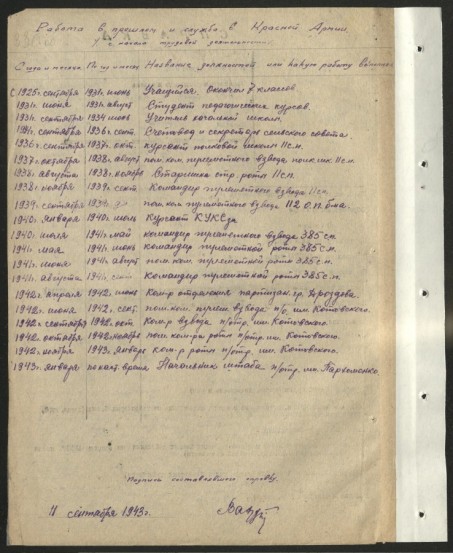 Работа в прошлом и служба в Красной Армии
с начала трудовой деятельности.
С года и месяца По год и месяц Название должностей или какую работу
С 1925г. сентября 1931г. июнь Учащийся. Окончил 7 классов.
1931г. июня 1931г. август Студент педагогических курсов.
1931г. сентября 1934 июнь Учитель начальной школы.
1934 сентября 1936 г. сент. Счетовод и секретарь сельского совета.
1936г. сентября 1937г. окт. курсант полковой школы 11 с.п.
1937г. октября 1938г. август пом.ком. пулеметного взвода 11 с.п.
1938г. августа 1938г. ноябрь Старшина стр. роты 11 с.п.
1938г. ноября 1939г. сент. Командир пулеметного взвода 11 с.п.
1939г. сентября пом.ком. пулеметного взвода 112 б-на.
1940г. января 1940г. июль Курсант КУКС
1940г. июля 1941г. май командир пулеметного взвода 385 с.п.
1941г. мая 1941г. июнь командир пулеметной роты 385 с.п.
1941г. июня 1941г. август пом.ком. пулеметной роты 385 с.п.
1941г. августа 1941г. Командир пулеметной роты 385 с.п.
1942г. апреля 1942г. июнь Ком-р отделения партизан. гр. Дроздова.
1942г. июня 1942г. сент. пом.ком. пулем. взвода п/о им. Котовского.
1942г. сентября 1942г. окт. Ком-р взвода п/отр. им. Котовского.
1942г. октября 1942г. ноября пом. ком-ра роты п/отр. им. Котовского.
1942г. ноября 1943г. январь ком-р роты п/отр. им. Котовского.
1943г. января по наст. время Начальник штаба п/отр. им. Пархоменко.
Подпись составившего справку.
сентября 1943г.